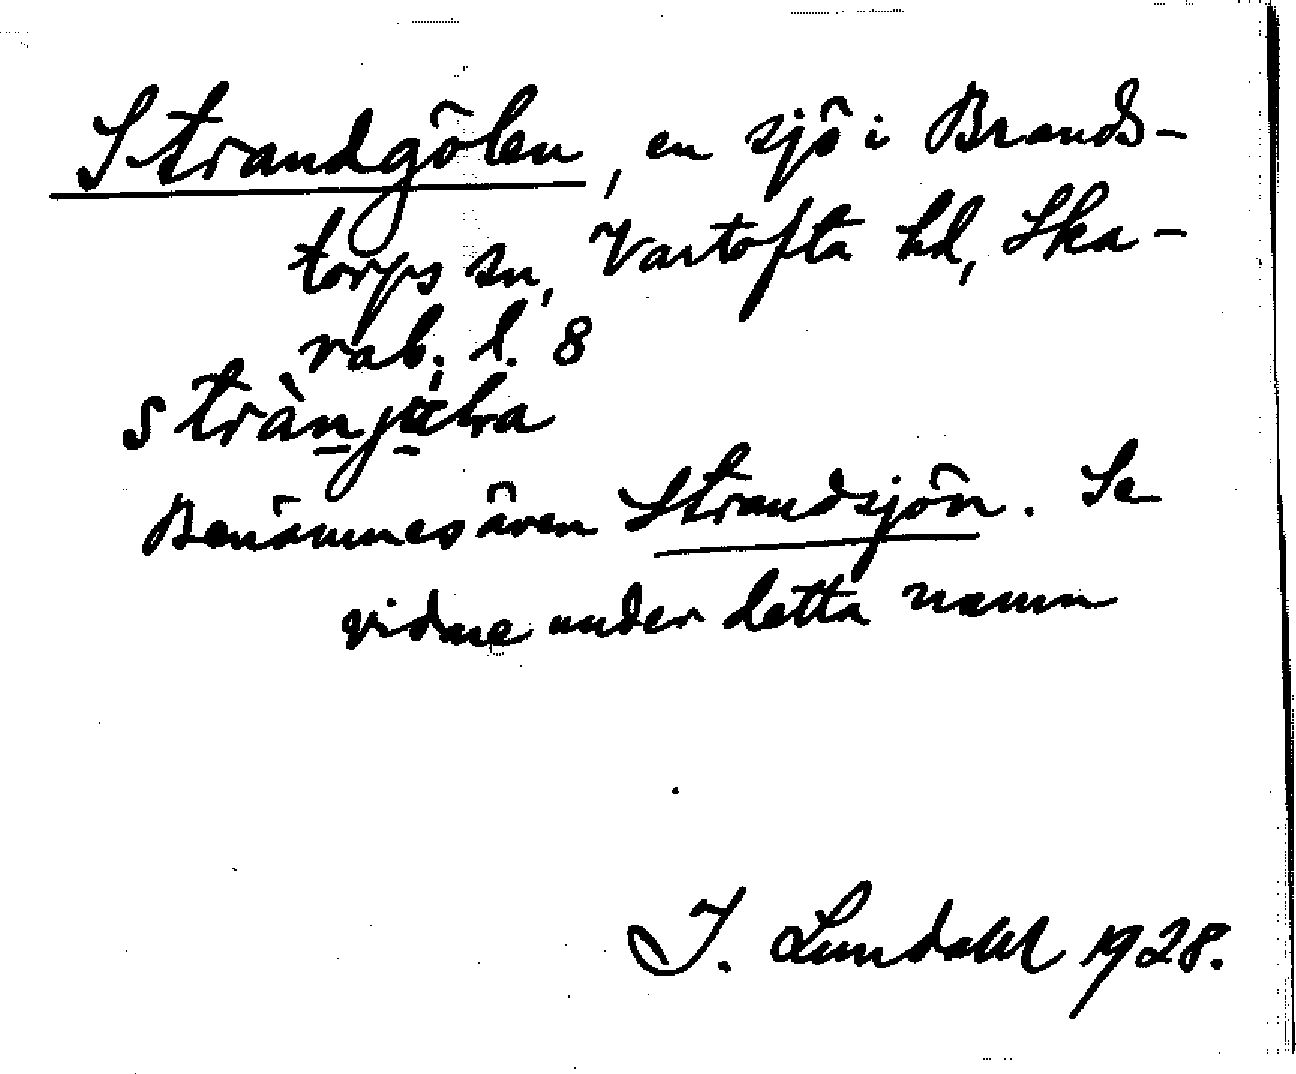 Strandgölen, en sjö i Brands-
torps sn, Vartofta hd, Ska-
rab. l. 8
Benämnes även Strandsjön. Se
vidare under detta namn
I. Lundahl 1928.